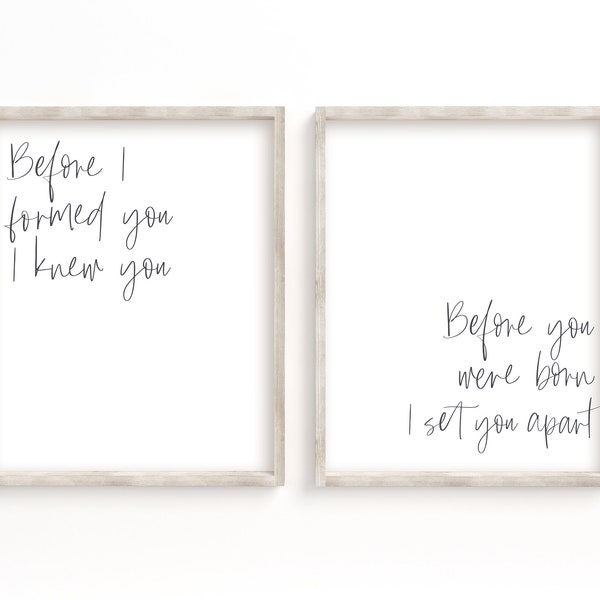 Before I
formed you
I knew you
Before you
were born
I set you apart